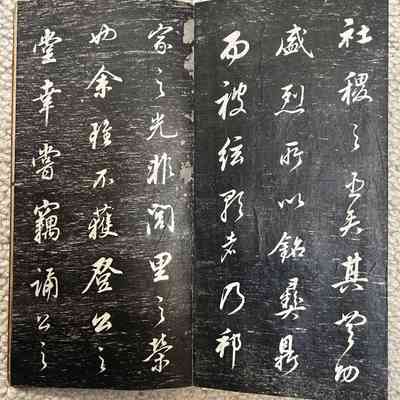 社稷之臣矣其豐功
盛烈所以銘彝鼎
而被絃歌者乃邦
家之光非閭里之榮
也余雖不獲登公之
堂幸嘗竊誦公之